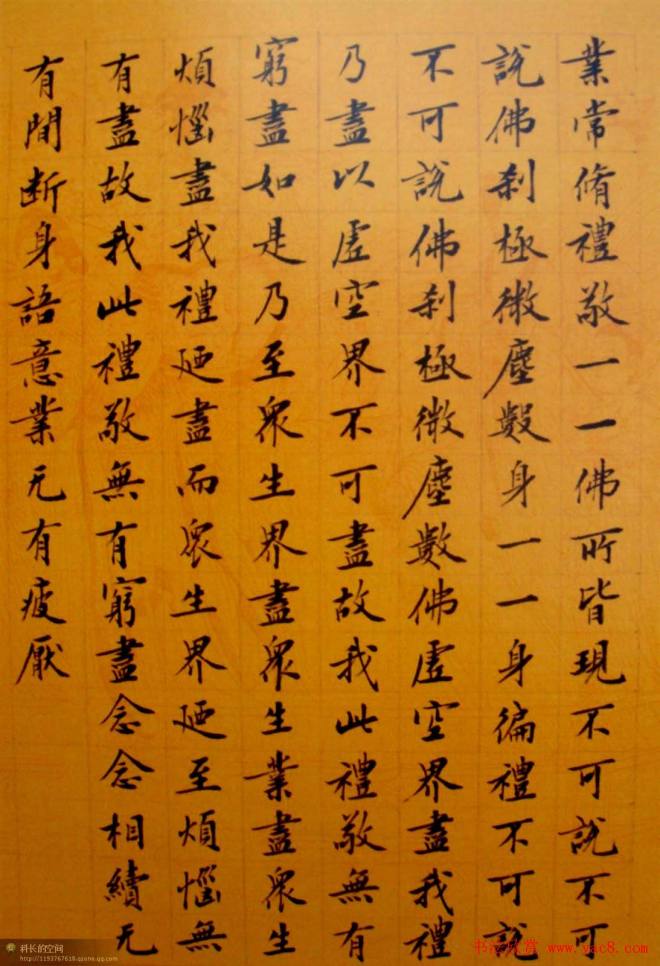 業常脩禮敬一一佛所皆現不可說不可
說佛剎極微塵數身一一身徧禮不可說
不可說佛剎極微塵數佛虛空界盡我禮
乃盡以虛空界不可盡故我此禮敬無有
窮盡如是乃至衆生界盡衆生業盡衆生
煩惱盡我禮廼盡而衆生界廼至煩惱無
有盡故我此禮敬無有窮盡念念相續无
有間断身語意業无有疲厭
科长的空间
http://1193767618.qzone.qq.com
书法欣赏 www.yac8.com